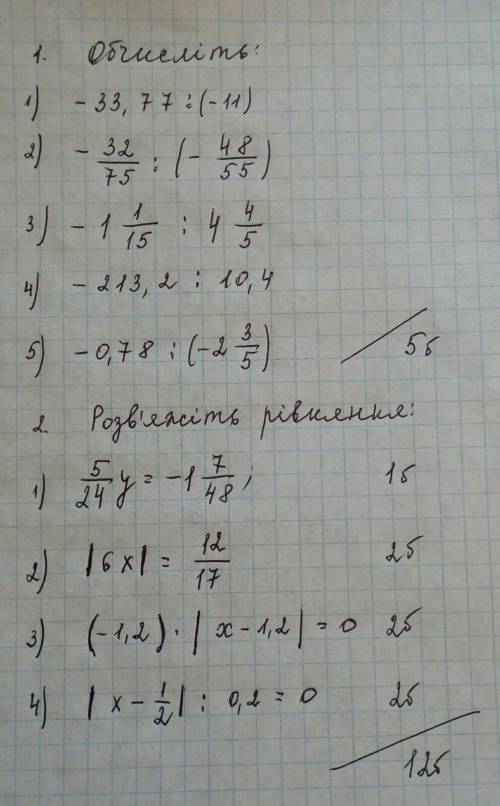 1. Обчисліть:
1) -33,77 : (-11)
2) - 32/75 : (- 48/55)
3) - 1 1/15 : 4 4/5
4) - 213,2 : 10,4
5) - 0,78 : (-2 3/5) 5б
2. Розв'яжіть рівняння:
1) 5/24 y = -1 7/48; 1б
2) |6x| = 12/17 2б
3) (-1,2) · |x - 1,2| = 0 2б
4) |x - 1/2| : 0,2 = 0 2б
12б